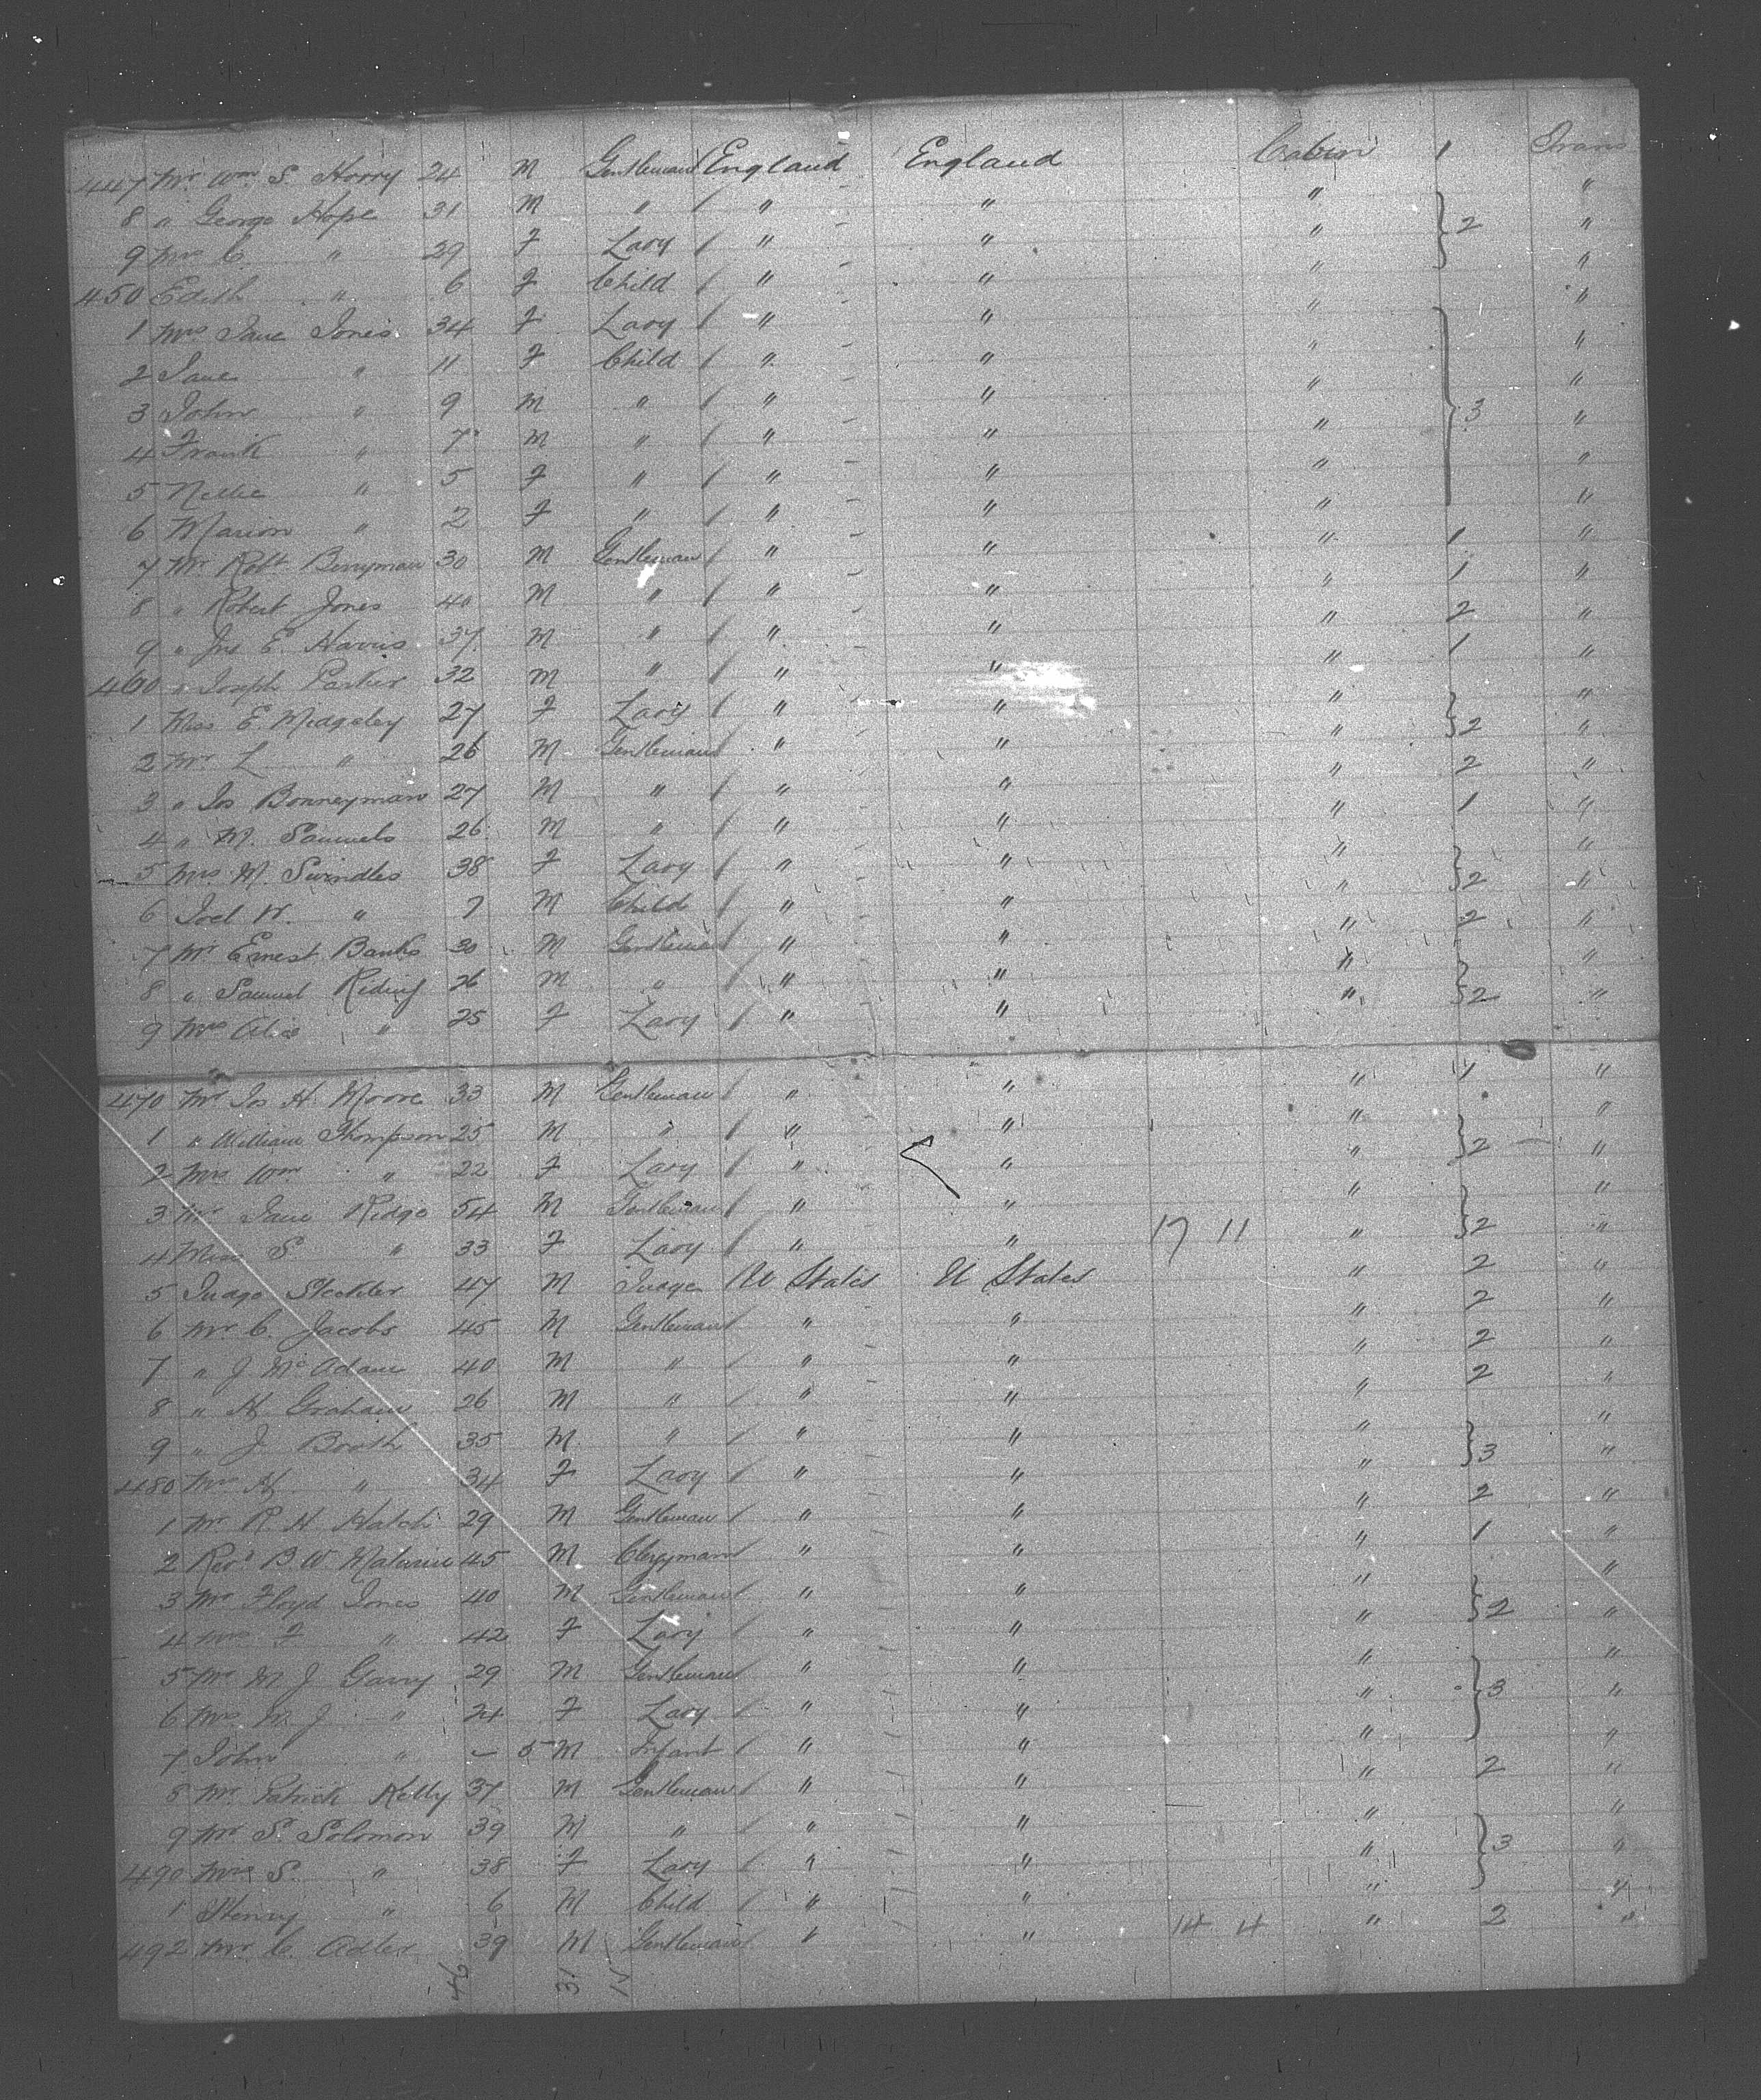 447 Mr Wm S. Horry 24 M Gentleman England England Cabin 1 Trans
8 " George Hope 31 M " " " " "
9 Mrs C. " 29 F Lady " " " 2 "
450 Edith " 6 F Child " " " "
1 Mrs Jane Jones 34 F Lady " " " "
2 Jane " 11 F Child " " " "
3 John " 9 M " " " " 3 "
4 Frank " 7 M " " " " "
5 Nellie " 5 F " " " " "
6 Marion " 2 F " " " " "
7 Mr Robt Berryman 30 M Gentleman " " " 1 "
8 " Robert Jones 40 M " " " " 1 "
9 " Jno E. Harris 37 M " " " " 2 "
460 " Joseph Parker 32 M " " " " 1 "
1 Miss E. Midgeley 27 F Lady " " " "
2 Mr L " 26 M Gentleman " " " 2 "
3 " Jos Bonneyman 27 M " " " " 2 "
4 " M. Samuels 26 M " " " " 1 "
5 Mrs M. Swindles 38 F Lady " " " "
6 Joel W. " 7 M Child " " " 2 "
7 Mr Ernest Banks 30 M Gentleman " " " 2 "
8 " Samuel Riding 26 M " " " " "
9 Mrs Alice " 25 F Lady " " " 2 "
470 Mr Jos H. Moore 33 M Gentleman " " " 1 "
1 " William Thompson 25 M " " " " "
2 Mrs Wm " 22 F Lady " " " 2 "
3 Mr Jane Ridge 54 M Gentleman " " " "
4 Miss S " 33 F Lady " " 17 11 " 2 "
5 Judge Steckler 47 M Judge U States U States " 2 "
6 Mr C. Jacobs 45 M Gentleman " " " 2 "
7 " J. McAdam 40 M " " " " 2 "
8 " H. Graham 26 M " " " " 2 "
9 " J. Booth 35 M " " " " "
480 Mrs H. " 34 F Lady " " " 3 "
1 Mr R. H. Hatch 29 M Gentleman " " " 2 "
2 Revd B. W. 45 M Clergyman " " " 1 "
3 Mr Floyd Jones 40 M Gentleman " " " "
4 Mrs F " 42 F Lady " " " 2 "
5 Mr M J Garry 29 M Gentleman " " " "
6 Mrs M. J " 24 F Lady " " " 3 "
7 John " - 5 M Infant " " " "
8 Mr Patrick Kelly 37 M Gentleman " " " 2 "
9 Mr S. Solomon 39 M " " " " "
490 Mrs S. " 38 F Lady " " " 3 "
1 Henry " 6 M Child " " " "
492 Mr C. Adler 39 M Gentleman " " 14 4 " 2 "
46 31 15